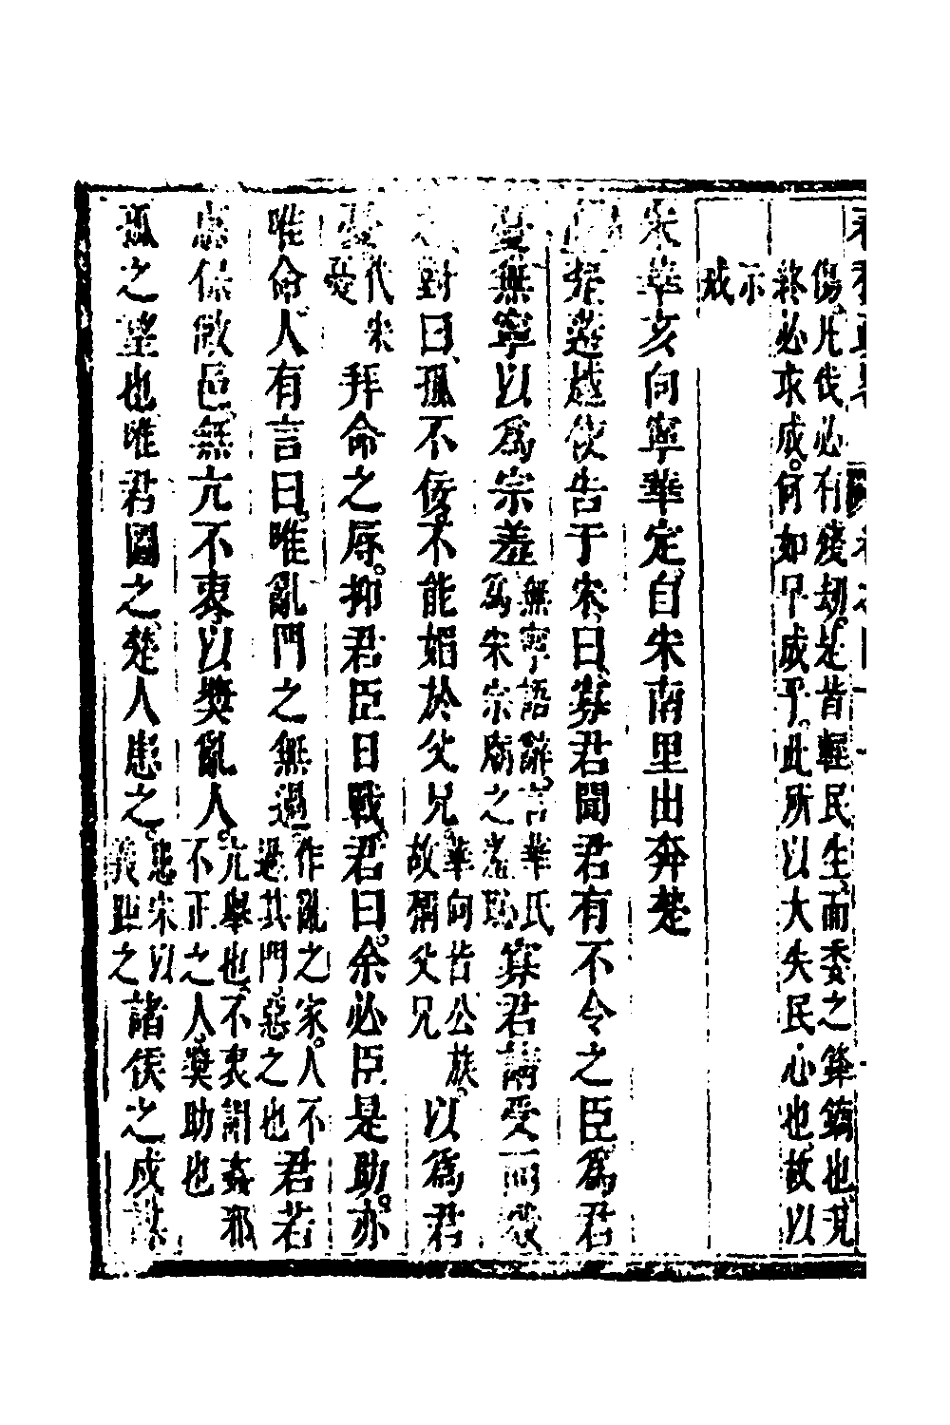 傷凡伐必有殘劫是皆輕民生而委之鋒鏑也況
終必求成何如早成乎此所以大失民心也故以
示
戒
宋華亥向寧華定自宋南里出奔楚
楚薳越使告于宋曰寡君聞君有不令之臣爲君
憂無寧以爲宗羞
無寧語辭言華氏
爲宋宗廟之羞恥
寡君請受而戮
之對曰孤不佞不能媚於父兄
華向皆公族
故稱父兄
以爲君
憂
代宋
憂
拜命之辱抑君臣日戰君曰余必臣是助亦
唯命人有言曰唯亂門之無過
作亂之家人不
過其門惡之也
君若
惠保敝邑無亢不衷以奬亂人
亢舉也不衷謂姦邪
不正之人奬助也
孤之望也唯君圖之楚人患之
患宋以
義距之
諸侯之戍謀